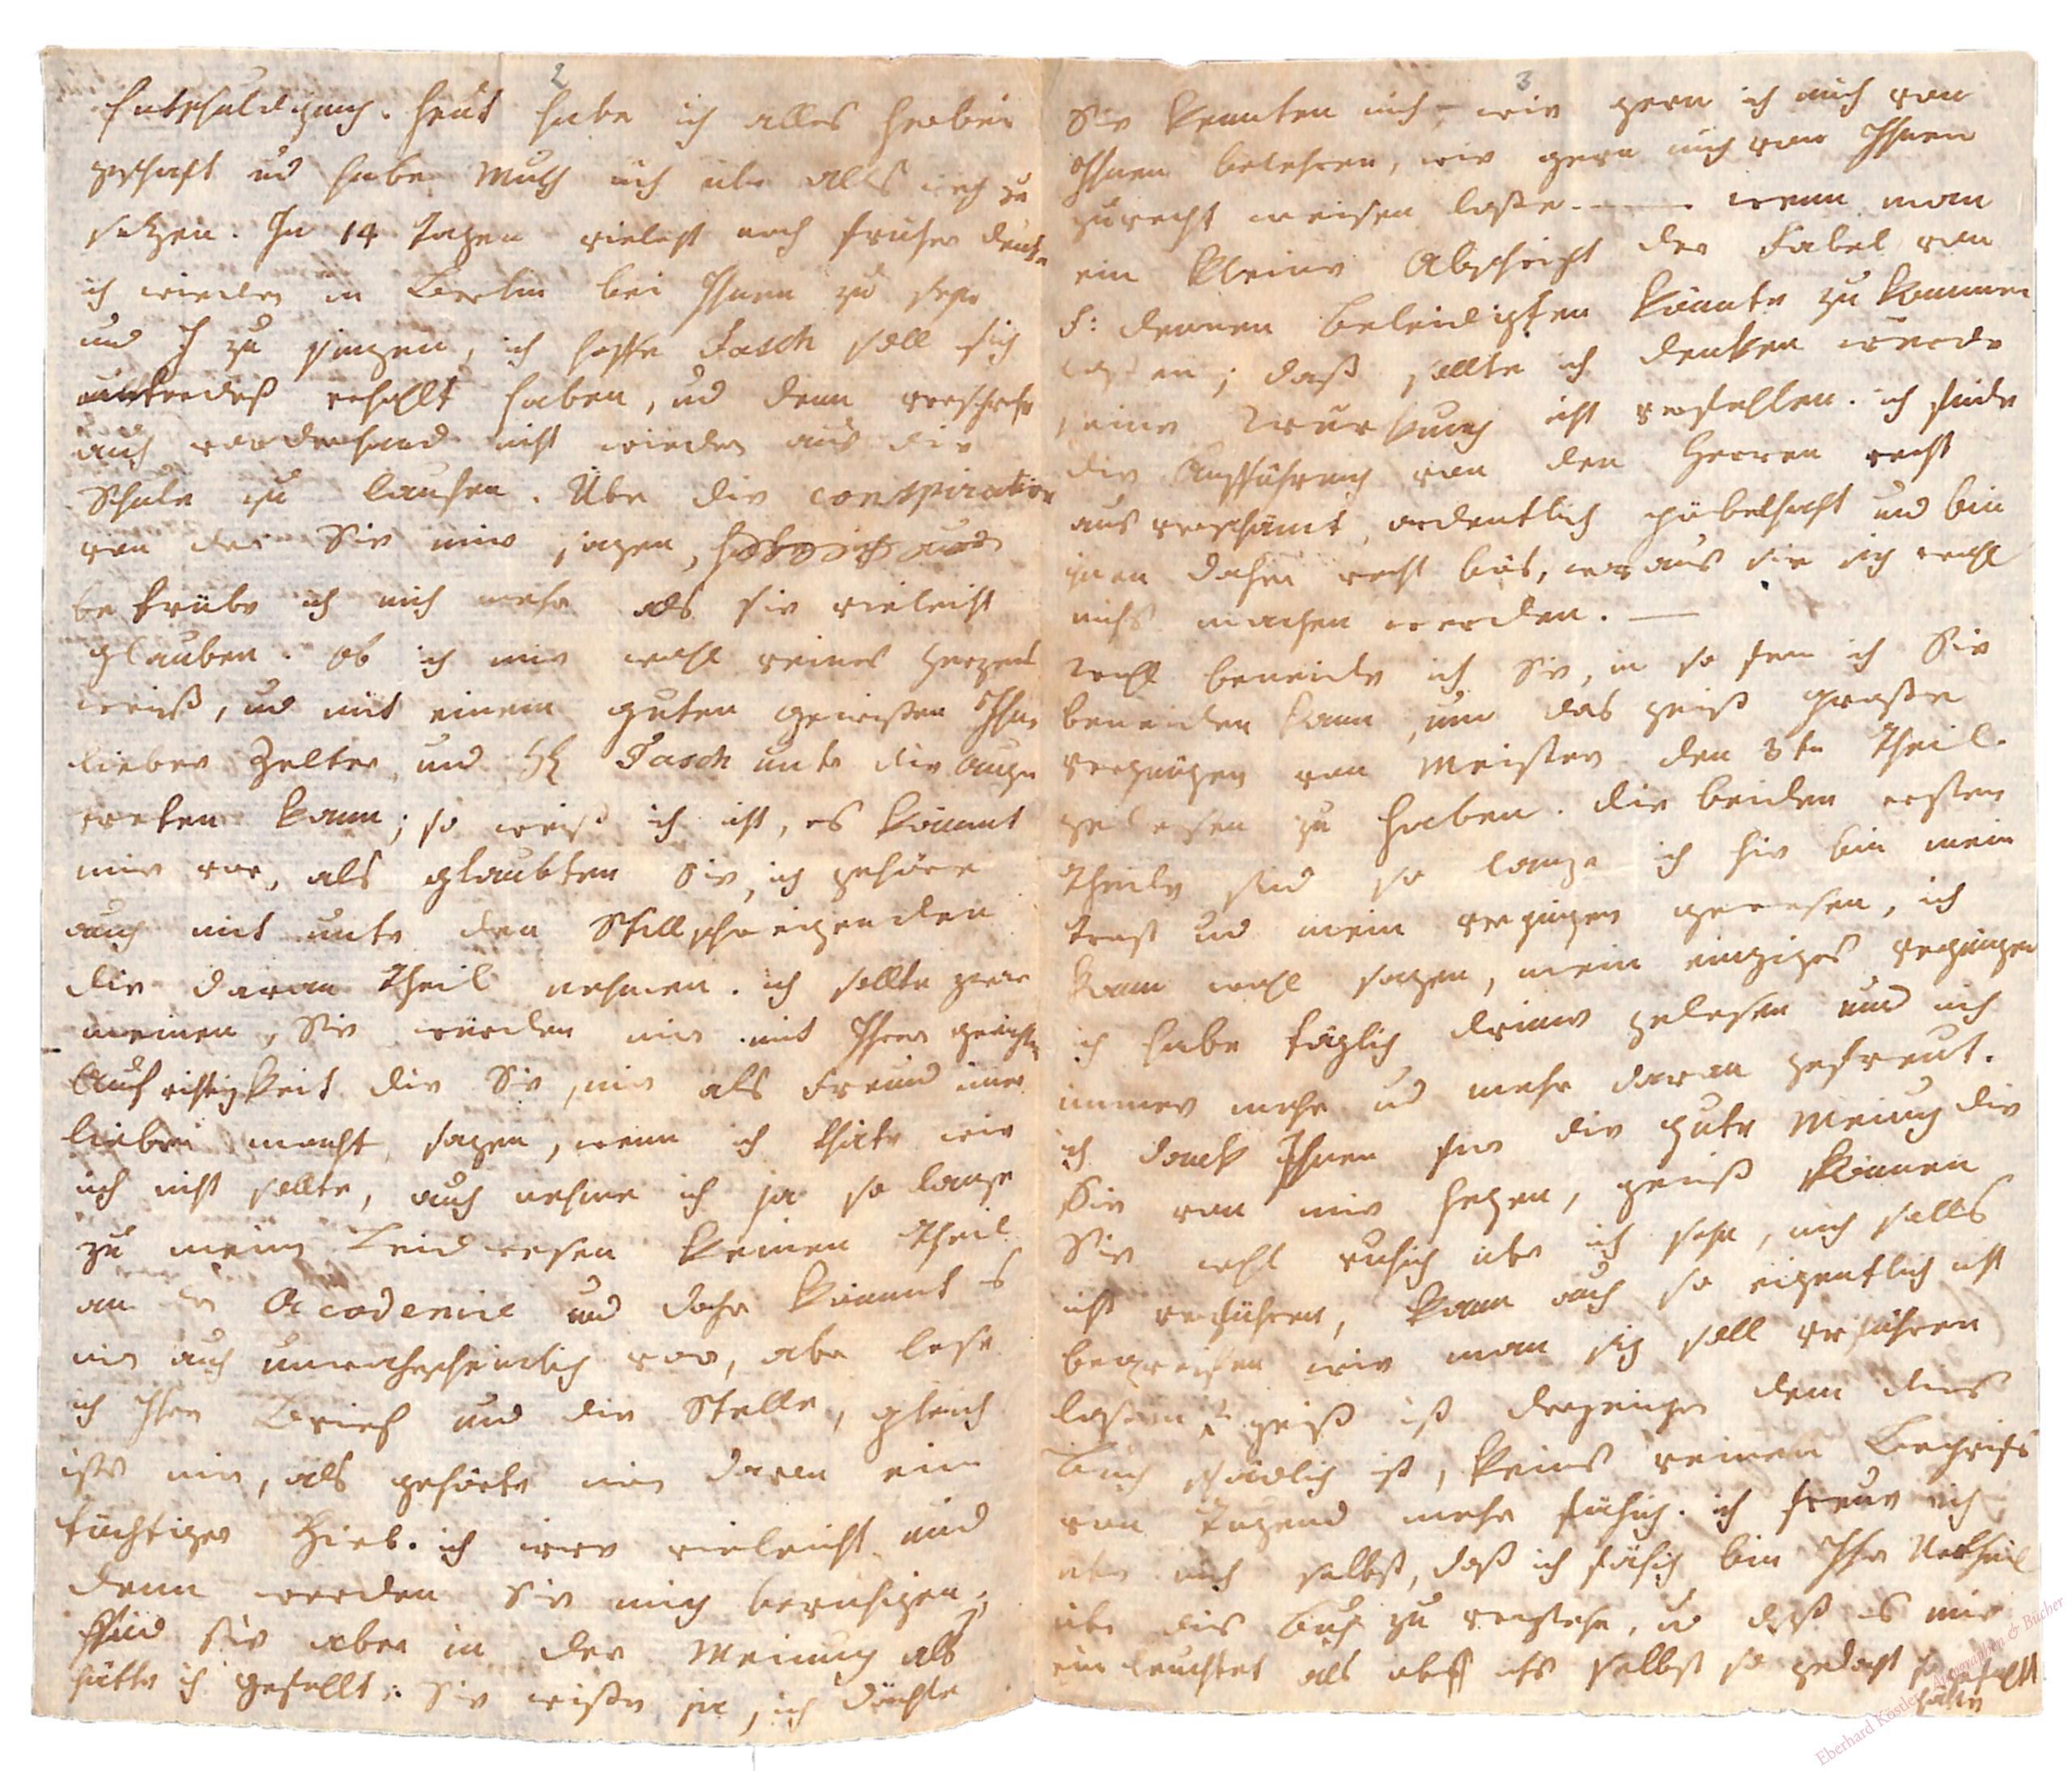 2
Entschuldigung. Heut habe ich alles herbei
geschaft und habe Muth mich über alles weg zu
setzen. In 14 Tagen vieleicht noch früher denke
ich wieder in Berlin bei Ihnen zu seyn
und zu singen, ich hoffe Fasch soll sich
unterdeß erhollt haben, und denn
auch vorderhand nicht wieder aus die
Schule zu laufen. Über die conspiration
von der Sie mir sagen,
betrübe ich mich mehr als sie vieleicht
glauben. Ob ich mir wohl reines Herzens
weiß, und mit einem guten gewißen Ihnen
lieber Zelter, und HE Fasch unter die Augen
treten kann; so weiß ich nicht, es kömmt
mir vor, als glaubten Sie, ich gehöre
auch mit unter den Stillschweigenden
die daran Theil nehmen. ich sollte zwar
meinen, Sie würden mir mit Ihrer
Aufrichtigkeit die Sie mir als Freund immer
lieber macht, sagen, wenn ich thäte wie
ich nicht sollte, auch nehme ich ja so lange
zu meinem Leidwesen keinen Theil
an der Accademie und daher kömmt es
mir auch unwahrscheinlich vor, aber lese
ich Ihren Brief und die Stelle, gleich
ists mir, als gehörte mir davon ein
tüchtiger Hieb. ich irre vieleicht und
denn werden Sie mich beruhigen;
Sind sie aber in der Meinung als
hätte ich gefehlt: Sie wißen ja, ich dächte
3
Sie kennten mich, wie gern ich mich von
Ihnen belehren, wie gern mich von Ihnen
zurecht weisen laße. — wenn man
ein kleine Abschrift der Fabel von
F: denen Beleidigten könnte zu kommen
laßen; daß sollte ich denken würde
seine Würkung nicht verfehlen. ich finde
die Aufführung von den Herren recht
aus verschämt, ordentlich pöbelhaft und bin
ihnen daher recht bös, woraus sie sich wohl
nichts machen werden. —
Wohl beneide ich Sie, in so fern ich Sie
beneiden kann, um das große
vergnügen von Meister den 3ten Theil
gelesen zu haben. Die beiden ersten
Theile sind so lange ich hier bin mein
Trost und mein vergnügen gewesen, ich
kann wohl sagen, mein einziges vergnügen
ich habe täglich drinne gelesen und mich
immer mehr und mehr daran gefreut.
ich danck Ihnen für die gute Meinung die
Sie von mir hegen, gewiß können
Sie wohl ruhich über mich sein, mich solls
nicht verführen, kann auch so eigentlich nicht
begreifen wie man sich soll verführen
laßen, gewiß ist derjenige dem dies
Buch schädlich ist, keines reinen Begriffs
von Tugend mehr fähich. ich freue mich
über mich selbst, daß ich fähich bin Ihr Urtheil
über dies Buch zu verstehn, und daß es mir
ein leuchtet als ob ichs selbst so gedacht
hätte
Eberhard Köstler Autographen & Bücher